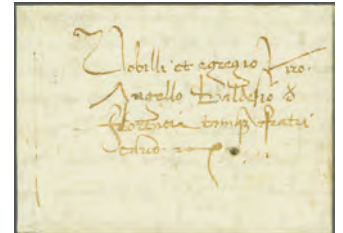 Nobilli et egregio Viro
Angello Baldesio d
Florēcia tamq̄ fratri
caro